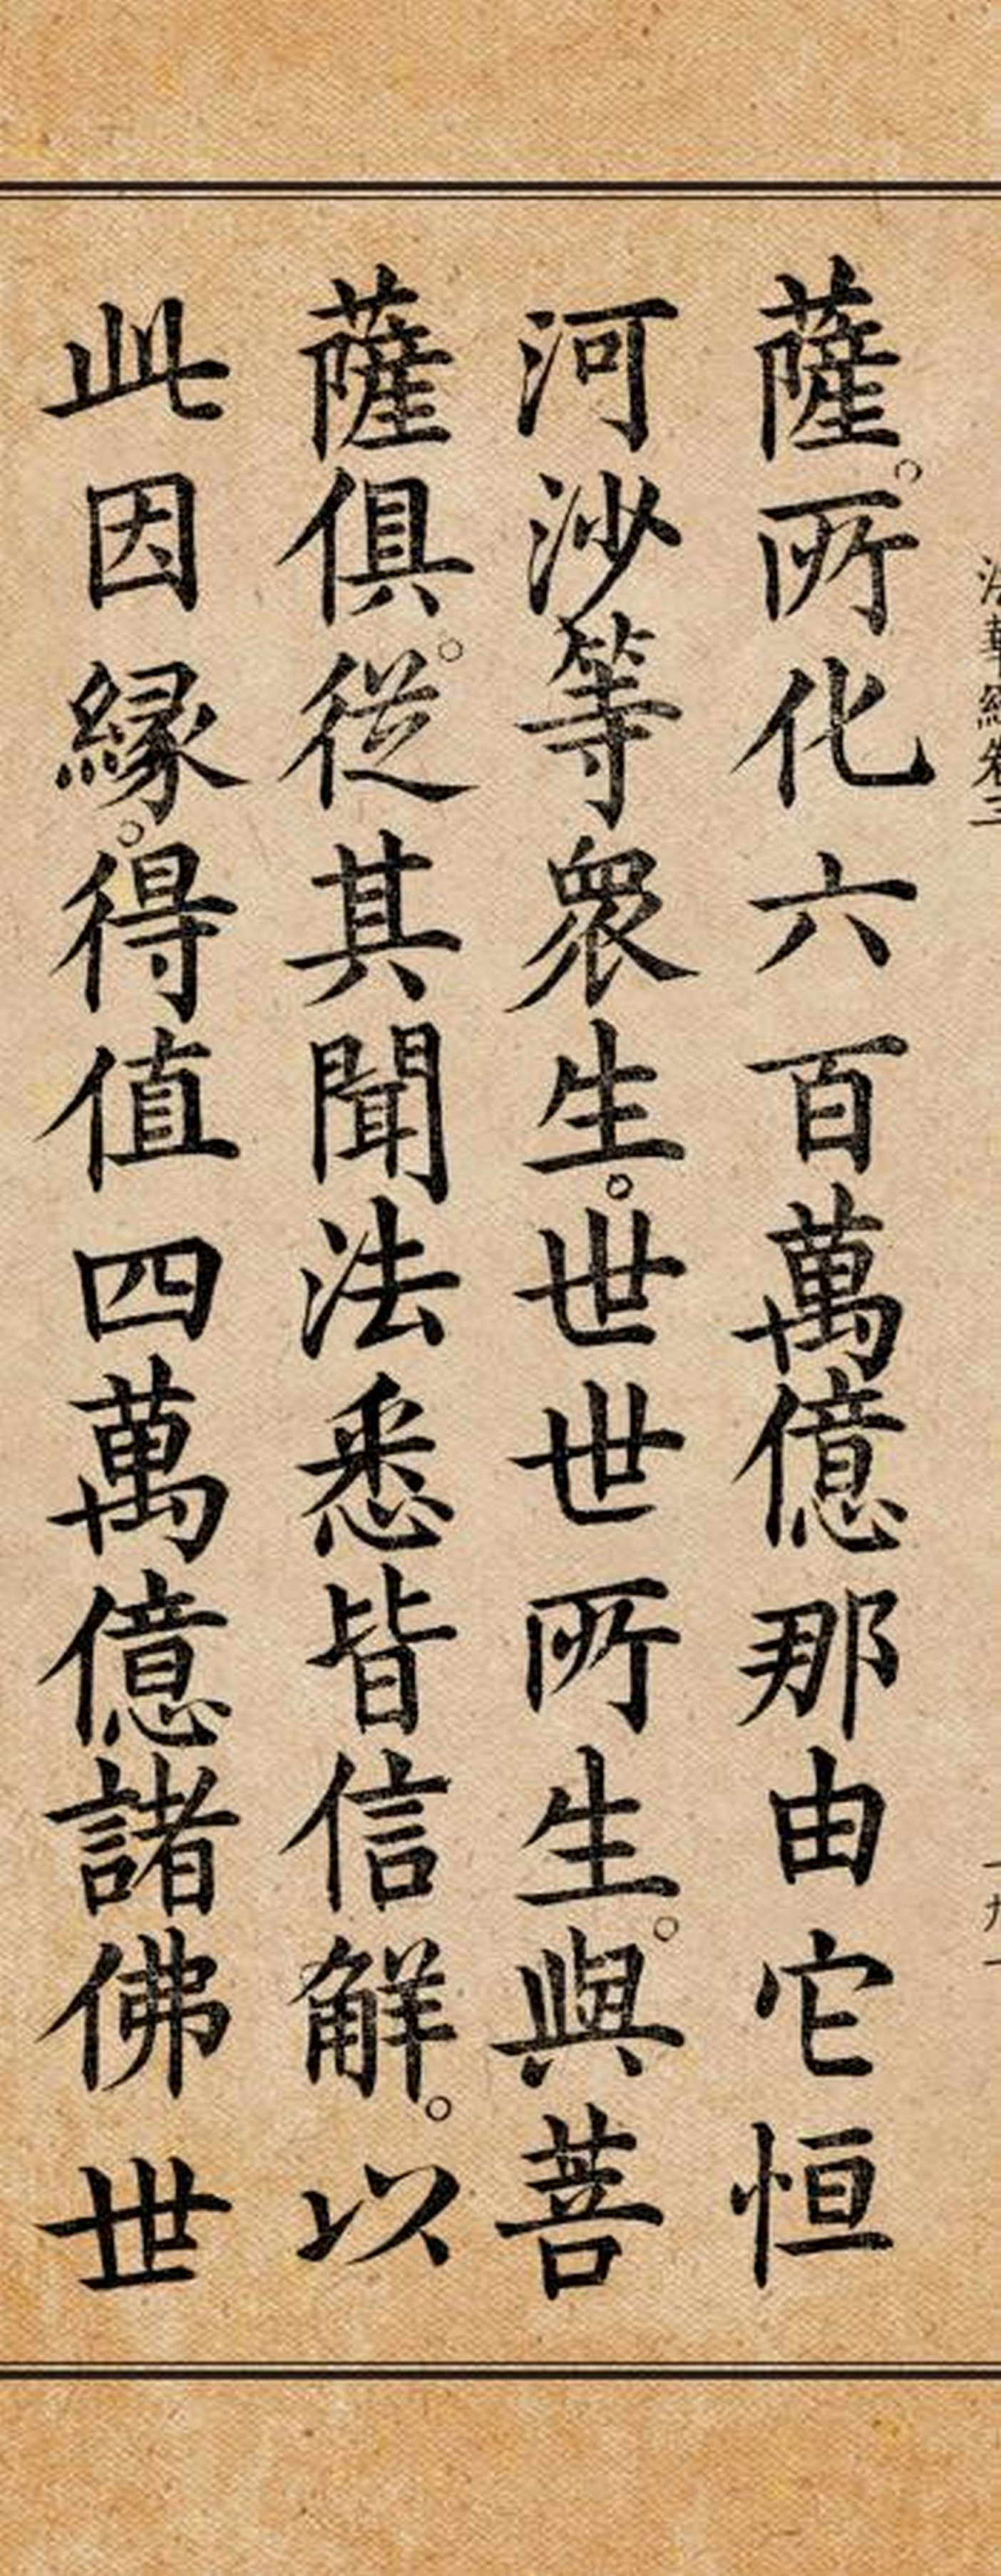 法華經卷三
薩。所化六百萬億那由它恒
河沙等眾生。世世所生。與菩
薩俱。從其聞法悉皆信解。以
此因緣。得值四萬億諸佛世